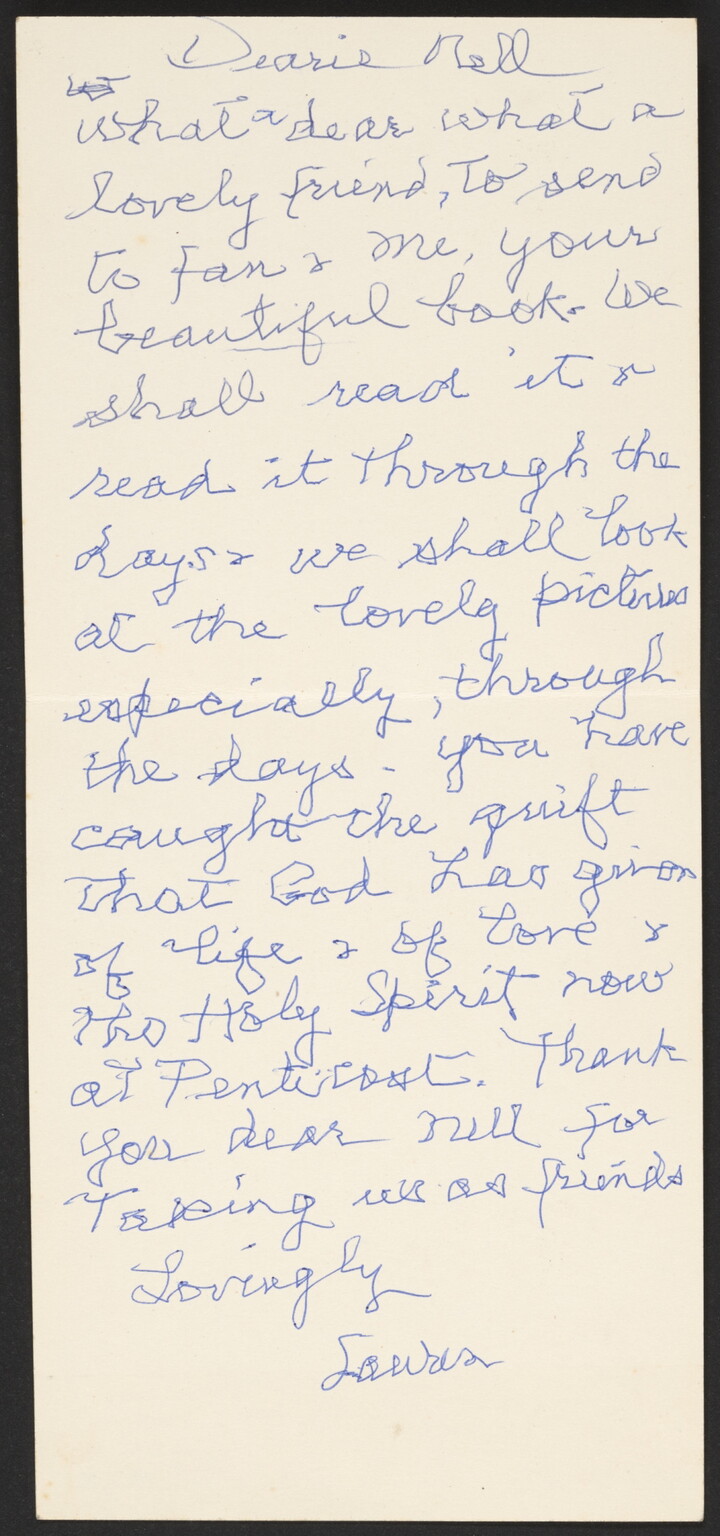 Dearie Nell
what a dear what a
lovely friend, To send
to Fan & me, your
beautiful book. We
shall read it &
read it through the
days & we shall look
at the lovely pictures
especially, through
the days - you have
caught the guift
that God has given
of life & of love &
the Holy Spirit now
at Penticost. Thank
you dear Nell for
Taking us as friends
Lovingly
Laura